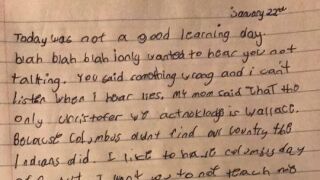 January 22nd
Today was not a good learning day.
blah blah blah i only wanted to hear you not
talking. You said something wrong and i can't
listen when I hear lies. My mom said that the
only christofer we acknoladg is wallace.
Because Columbus didnt find our country the
Indians did. I like to have columbus day
I want you to not teach me